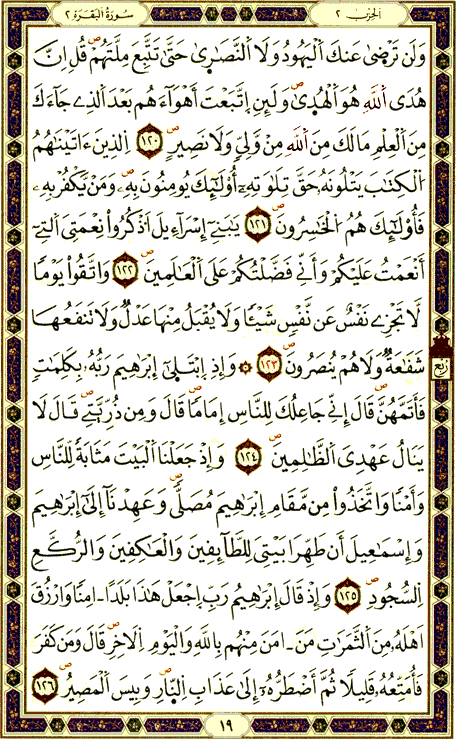 الحِزْب ٢
سُورَةُ الْبَقَرَة ٢
وَلَن تَرْضَىٰ عَنكَ اَ۬لْيَهُودُ وَلَا اَ۬لنَّصَٰرَىٰ حَتَّىٰ تَتَّبِعَ مِلَّتَهُمْ قُلِ انَّ
هُدَى اَ۬للَّهِ هُوَ اَ۬لْهُدَىٰ وَلَئِنِ اِتَّبَعْتَ أَهْوَآءَهُم بَعْدَ اَ۬لذِے جَآءَكَ
مِنَ اَ۬لْعِلْمِ مَا لَكَ مِنَ اَ۬للَّهِ مِنْ وَّلِيّٖ وَلَا نَصِيرٍ ١٢٠ اِ۬لذِينَ ءَاتَيْنَٰهُمُ
اُ۬لْكِتَٰبَ يَتْلُونَهُۥ حَقَّ تِلَٰوَتِهِۦٓ أُوْلَٰٓئِكَ يُومِنُونَ بِهِۦ وَمَنْ يَّكْفُرْ بِهِۦ
فَأُوْلَٰٓئِكَ هُمُ اُ۬لْخَٰسِرُونَ ١٢١ يَٰبَنِےٓ إِسْرَآءِيلَ اَ۟ذْكُرُواْ نِعْمَتِيَ اَ۬لتِےٓ
أَنْعَمْتُ عَلَيْكُمْ وَأَنِّے فَضَّلْتُكُمْ عَلَى اَ۬لْعَٰلَمِينَ ١٢٢ وَاتَّقُواْ يَوْماٗ
لَّا تَجْزِے نَفْسٌ عَن نَّفْسٖ شَيْـٔاٗ وَلَا يُقْبَلُ مِنْهَا عَدْلٞ وَلَا تَنفَعُهَا
شَفَٰعَةٞ وَلَا هُمْ يُنصَرُونَ ١٢٣ ۞ وَإِذِ اِ۪بْتَلَىٰٓ إِبْرَٰهِيمَ رَبُّهُۥ بِكَلِمَٰتٖ
ربع
فَأَتَمَّهُنَّ قَالَ إِنِّے جَاعِلُكَ لِلنَّاسِ إِمَاماٗ قَالَ وَمِن ذُرِّيَّتِے قَالَ لَا
يَنَالُ عَهْدِيَ اَ۬لظَّٰلِمِينَ ١٢٤ وَإِذْ جَعَلْنَا اَ۬لْبَيْتَ مَثَابَةٗ لِّلنَّاسِ
وَأَمْناٗ وَاتَّخَذُواْ مِن مَّقَامِ إِبْرَٰهِيمَ مُصَلّىٗ وَعَهِدْنَآ إِلَىٰٓ إِبْرَٰهِيمَ
وَإِسْمَٰعِيلَ أَن طَهِّرَا بَيْتِيَ لِلطَّآئِفِينَ وَالْعَٰكِفِينَ وَالرُّكَّعِ
اِ۬لسُّجُودِ ١٢٥ وَإِذْ قَالَ إِبْرَٰهِيمُ رَبِّ اِ۪جْعَلْ هَٰذَا بَلَداً اٰمِناٗ وَارْزُقَ
اَهْلَهُۥ مِنَ اَ۬لثَّمَرَٰتِ مَنَ اٰمَنَ مِنْهُم بِاللَّهِ وَالْيَوْمِ اِ۬لَاخِرِ قَالَ وَمَن كَفَرَ
فَأُمَتِّعُهُۥ قَلِيلاٗ ثُمَّ أَضْطَرُّهُۥٓ إِلَىٰ عَذَابِ اِ۬لنَّارِ وَبِيسَ اَ۬لْمَصِيرُ ١٢٦
١٩